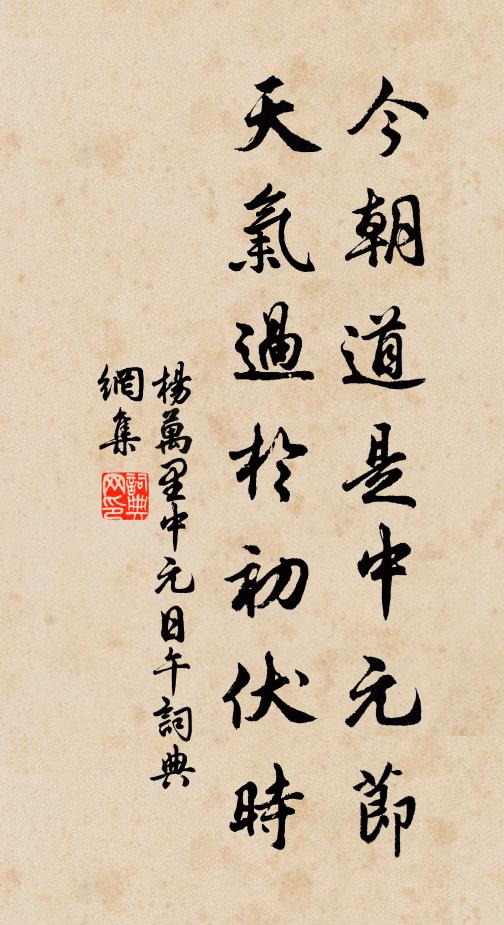 今朝道是中元節
天氣過於初伏時
楊萬里中元日午詞典
網集
詞典
网印